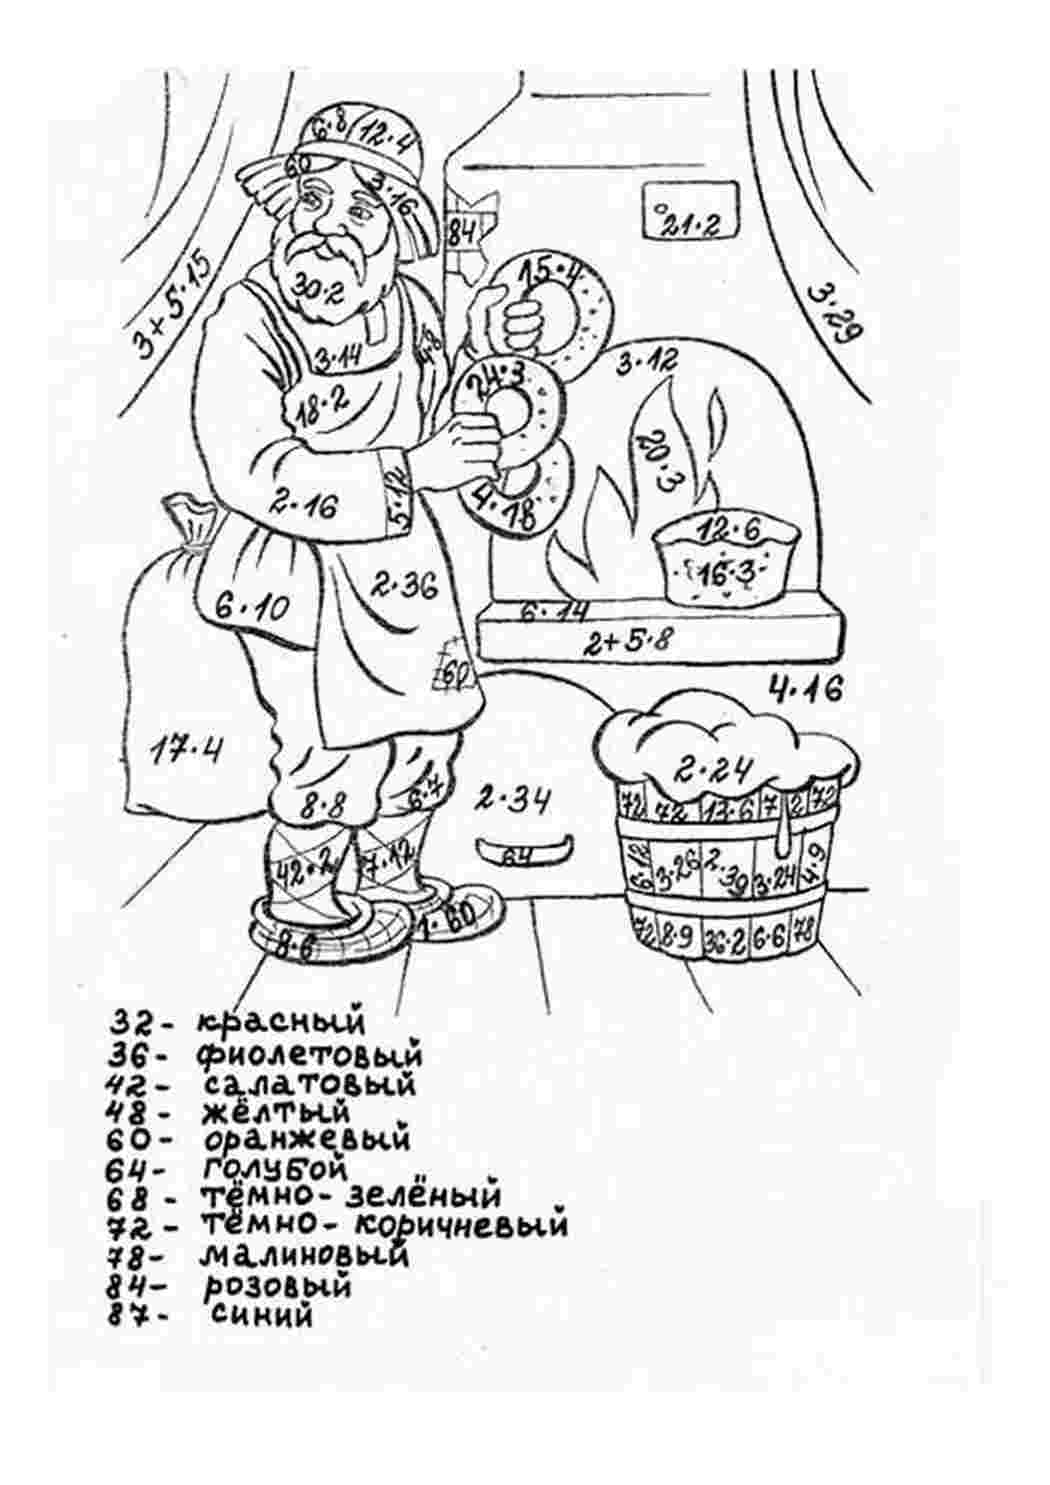 6·8 12·4
60
3·16
84
21·2
30·2
15·4
3+5·15
3·29
3·14
4·8
3·12
24·3
18·2
20·3
2·16
5·12
4·18
12·6
16·3
6·10
2·36
6·14
2+5·8
60
4·16
17·4
2·24
8·8
2·34
72 72 13·6 7 2 72
64
42·2 7·12
6·12 3·26 2·39 3·24 4·9
8·6 1·60
72 8·9 36·2 6·6 78
32- красный
36- фиолетовый
42- салатовый
48- жёлтый
60- оранжевый
64- голубой
68- тёмно-зелёный
72- тёмно-коричневый
78- малиновый
84- розовый
87- синий